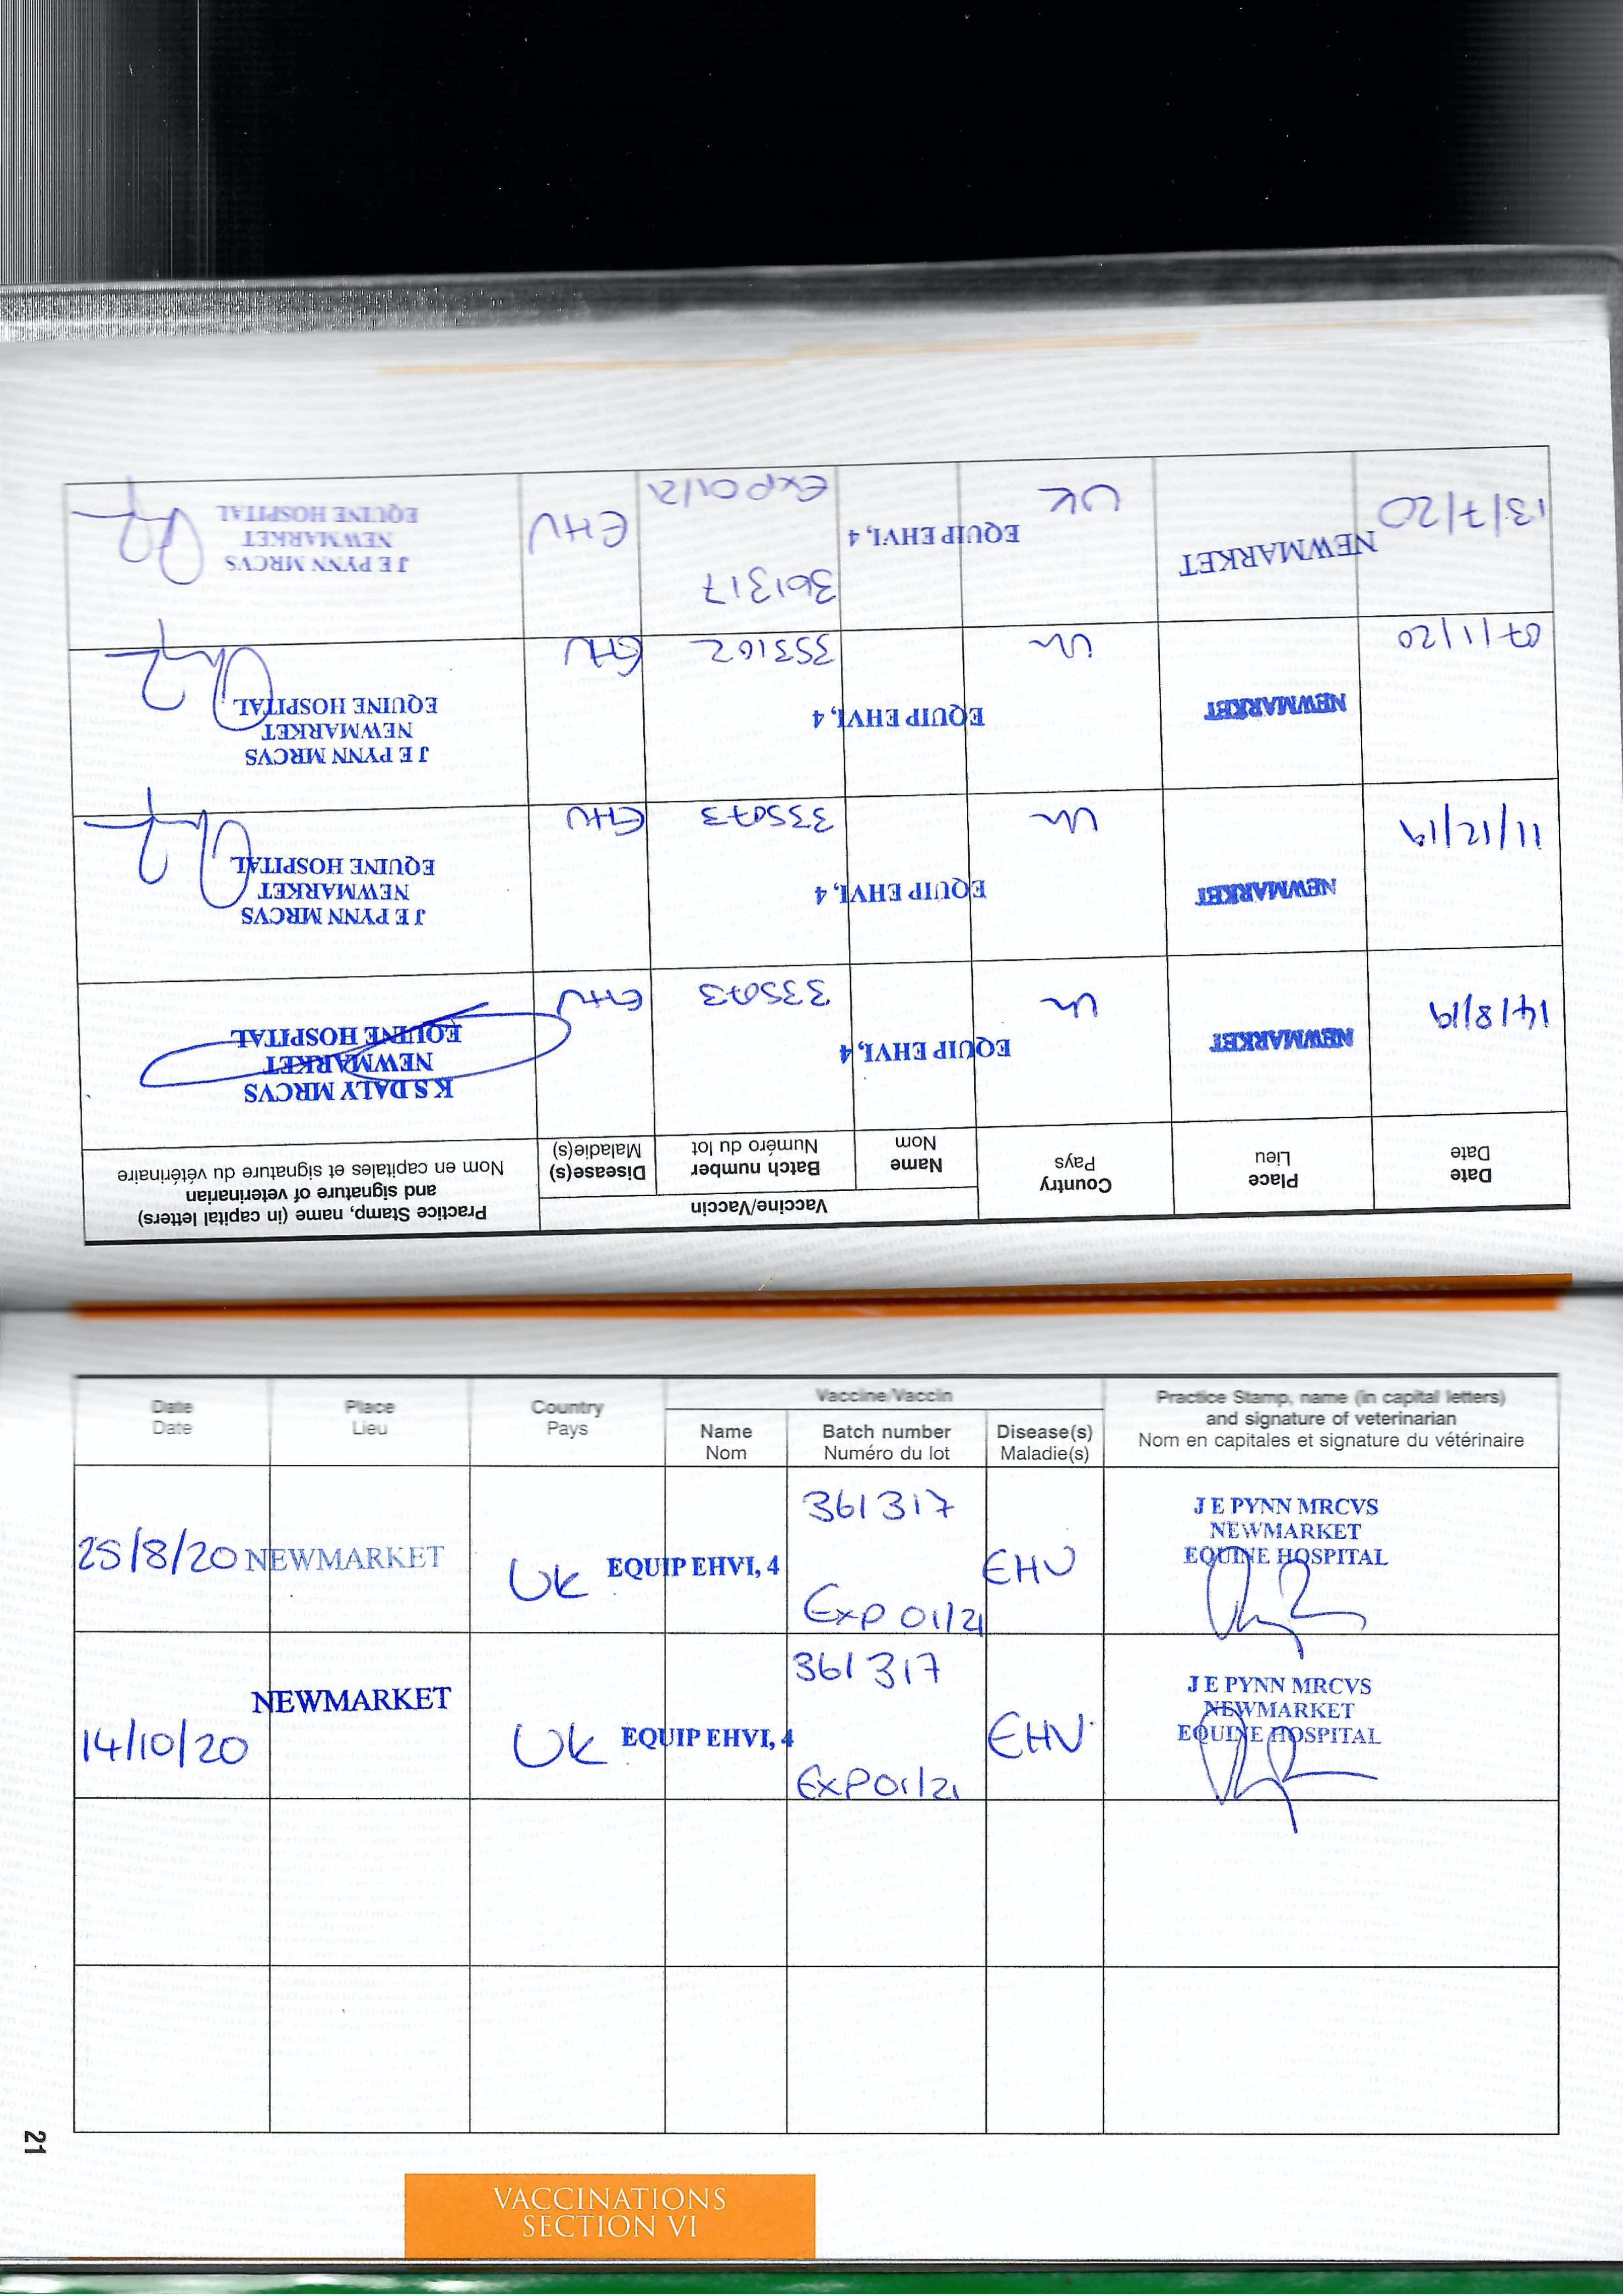 Date
Date
Place
Lieu
Country
Pays
Vaccine/Vaccin
Name
Nom
Batch number
Numéro du lot
Disease(s)
Maladie(s)
Practice Stamp, name (in capital letters)
and signature of veterinarian
Nom en capitales et signature du vétérinaire
14/8/19
NEWMARKET
Uk
EQUIP EHVI, 4
335073
EHV
K S DALY MRCVS
NEWMARKET
EQUINE HOSPITAL
11/12/19
NEWMARKET
Uk
EQUIP EHVI, 4
335073
EHV
J E PYNN MRCVS
NEWMARKET
EQUINE HOSPITAL
07/1/20
NEWMARKET
Uk
EQUIP EHVI, 4
353102
EHV
J E PYNN MRCVS
NEWMARKET
EQUINE HOSPITAL
13/7/20
NEWMARKET
UK
EQUIP EHVI, 4
361317
Exp 01/21
EHV
J E PYNN MRCVS
NEWMARKET
EQUINE HOSPITAL
Date
Date
Place
Lieu
Country
Pays
Vaccine/Vaccin
Name
Nom
Batch number
Numéro du lot
Disease(s)
Maladie(s)
Practice Stamp, name (in capital letters)
and signature of veterinarian
Nom en capitales et signature du vétérinaire
25/8/20
NEWMARKET
Uk
EQUIP EHVI, 4
361317
Exp 01/21
EHV
J E PYNN MRCVS
NEWMARKET
EQUINE HOSPITAL
14/10/20
NEWMARKET
Uk
EQUIP EHVI, 4
361317
Exp 01/21
EHV
J E PYNN MRCVS
NEWMARKET
EQUINE HOSPITAL
21
VACCINATIONS
SECTION VI